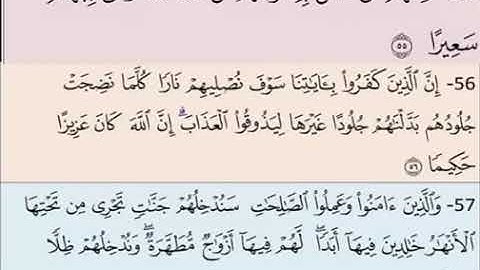 سَعِيرًا ٥٥
56- إِنَّ ٱلَّذِينَ كَفَرُوا۟ بِـَٔايَـٰتِنَا سَوْفَ نُصْلِيهِمْ نَارًا كُلَّمَا نَضِجَتْ
جُلُودُهُم بَدَّلْنَـٰهُمْ جُلُودًا غَيْرَهَا لِيَذُوقُوا۟ ٱلْعَذَابَ ۗ إِنَّ ٱللَّهَ كَانَ عَزِيزًا
حَكِيمًا ٥٦
57- وَٱلَّذِينَ ءَامَنُوا۟ وَعَمِلُوا۟ ٱلصَّـٰلِحَـٰتِ سَنُدْخِلُهُمْ جَنَّـٰتٍ تَجْرِى مِن تَحْتِهَا
ٱلْأَنْهَـٰرُ خَـٰلِدِينَ فِيهَآ أَبَدًا ۖ لَّهُمْ فِيهَآ أَزْوَٰجٌ مُّطَهَّرَةٌ ۖ وَنُدْخِلُهُمْ ظِلًّا